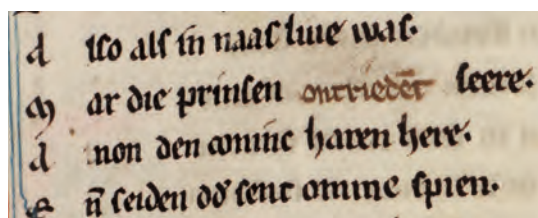 A lso alſ in naaſ liue waſ·
M ar die prinſen ontriedēt ſeere·
A non den coninc haren here·
E n̄ ſeiden dd̄ ſent omme ſpien·